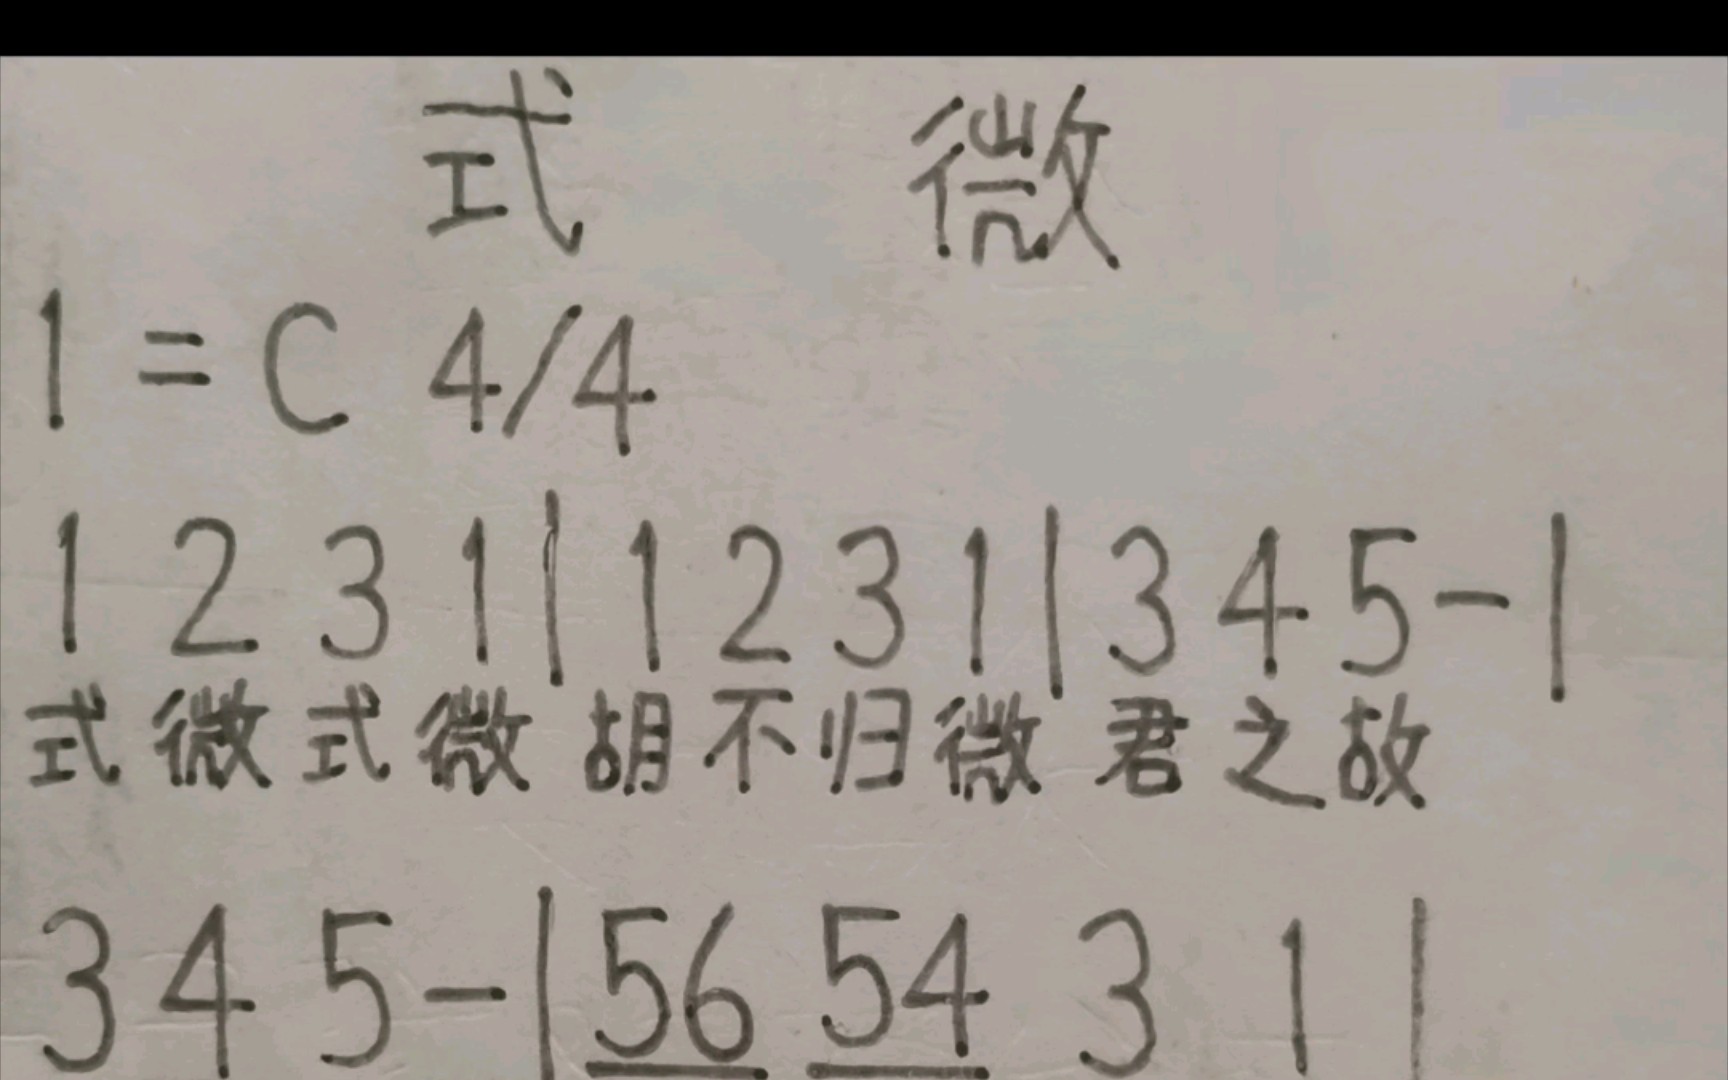 式 微
1 = C 4/4
1 2 3 1 | 1 2 3 1 | 3 4 5 - |
式 微 式 微 胡 不 归 微 君 之 故
3 4 5 - | 56 54 3 1 |